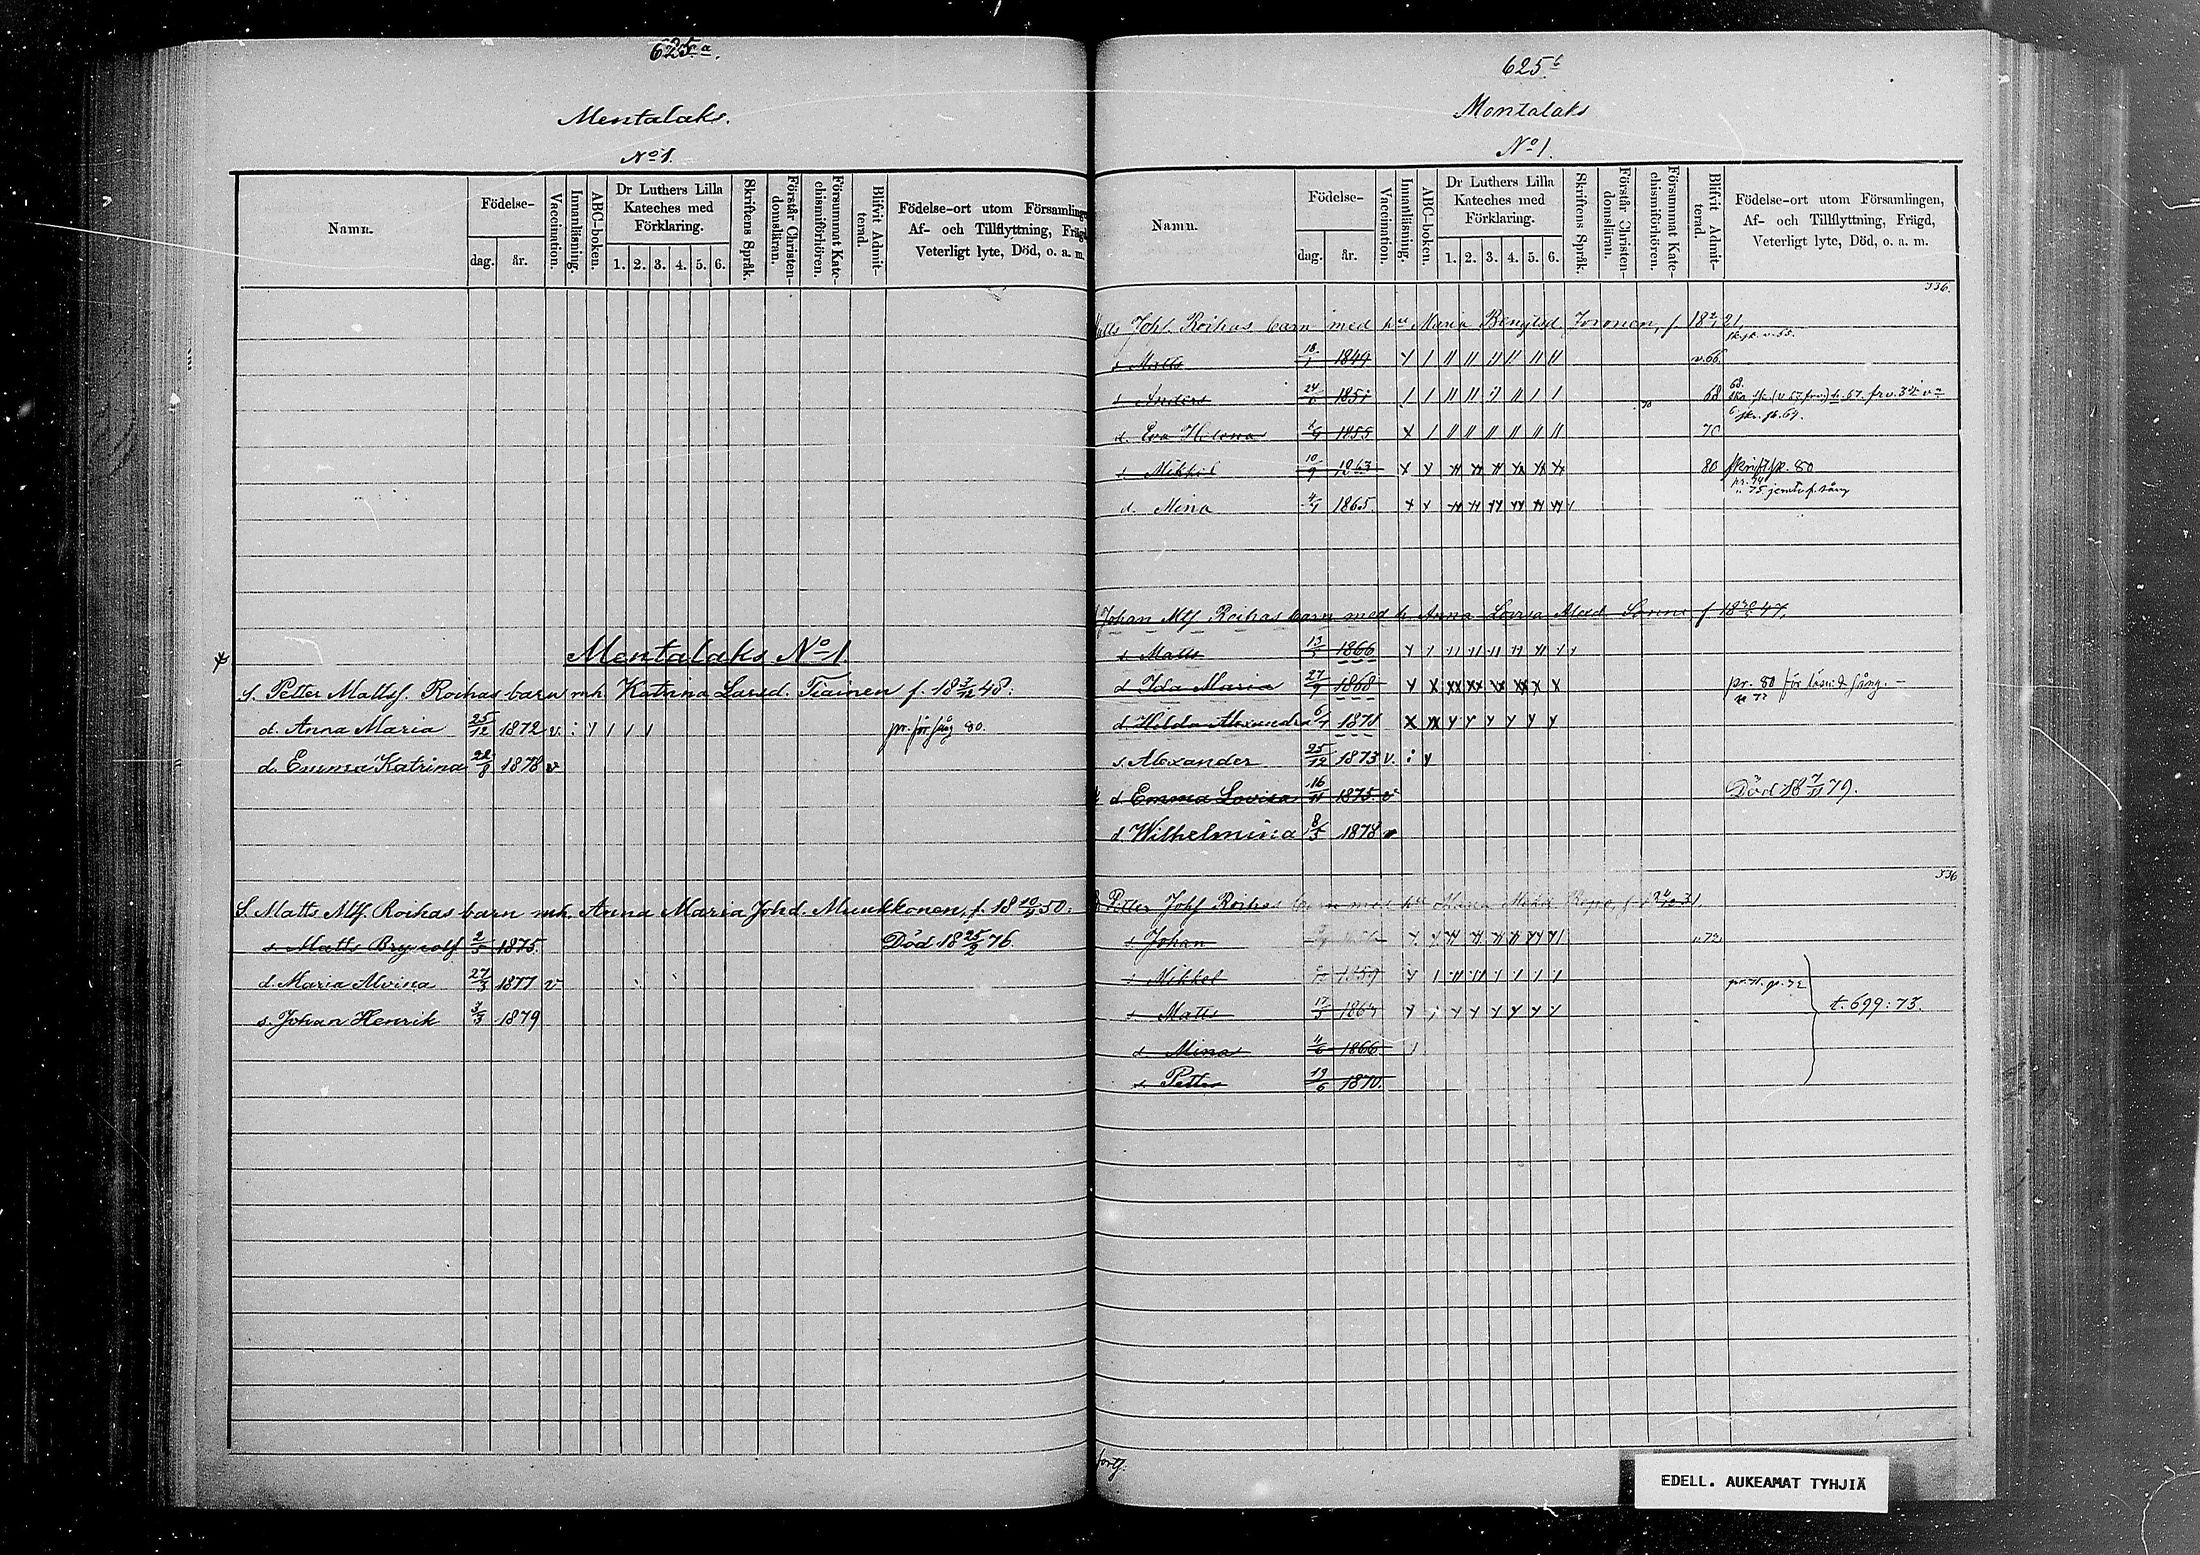 625a.
Mentalaks.
No 1.
Namn.
Födelse-
dag. år.
Vaccination.
Innanläsning.
ABC-boken.
Dr Luthers Lilla Kateches med Förklaring.
1. 2. 3. 4. 5. 6.
Skriftens Språk.
Förstår Christendomsläran.
Försummat Katechismiförhören.
Blifvit Admitterad.
Födelse-ort utom Församlingen
Af- och Tillflyttning, Frägd,
Veterligt lyte, Död, o. a. m.
Mentalaks No 1.
s. Petter Mattss. Roihas barn mh. Katrina Larsd. Tiainen f. 18 3/12 48:
d. Anna Maria 25/12 1872 v.
pr. för sång 80.
d. Emma Katrina 22/8 1878 v
S. Matts Mts. Roihas barn mh. Anna Maria Johd. Munkkonen, f. 18 10/9 50:
s Matts Brynolf 2/5 1875. Död 18 25/2 76.
d. Maria Alvina 27/3 1877 v
s. Johan Henrik 3/3 1879
625b
Mentalaks
No 1.
Namn.
Födelse-
dag. år.
Vaccination.
Innanläsning.
ABC-boken.
Dr Luthers Lilla Kateches med Förklaring.
1. 2. 3. 4. 5. 6.
Skriftens Språk.
Förstår Christendomsläran.
Försummat Katechismiförhören.
Blifvit Admitterad.
Födelse-ort utom Församlingen,
Af- och Tillflyttning, Frägd,
Veterligt lyte, Död, o. a. m.
336.
Matts Johs. Roihas barn med hu Maria Bengtsd
s Matts 18/1 1849 v. 66.
s Anders 1851 68
d. Eva Helena 1855 70
s Mikkel 10/9 1863 80 skriftsk. 80
d. Mina 4/1 1865.
Johan Mts Roihas barn med h. Anna Lovisa
s Matts 13/5 1866
d Ida Maria 27/9 1868 pr. 80 för läsn. & sång. —
d Hilda Alexandra 6/7 1871
s. Alexander 25/12 1873 v.
d. Emma Lovisa 16/11 1875. v Död 18 7/11 79.
d. Wilhelmina 8/5 1878 v
336
Petter Johs Roihas barn med hu
s Johan 1856 v 72
s Mikkel 1859
s Matts 17/5 1864 t. 699:73.
d Mina 11/6 1866
s Petter 19/6 1870.
EDELL. AUKEAMAT TYHJIÄ